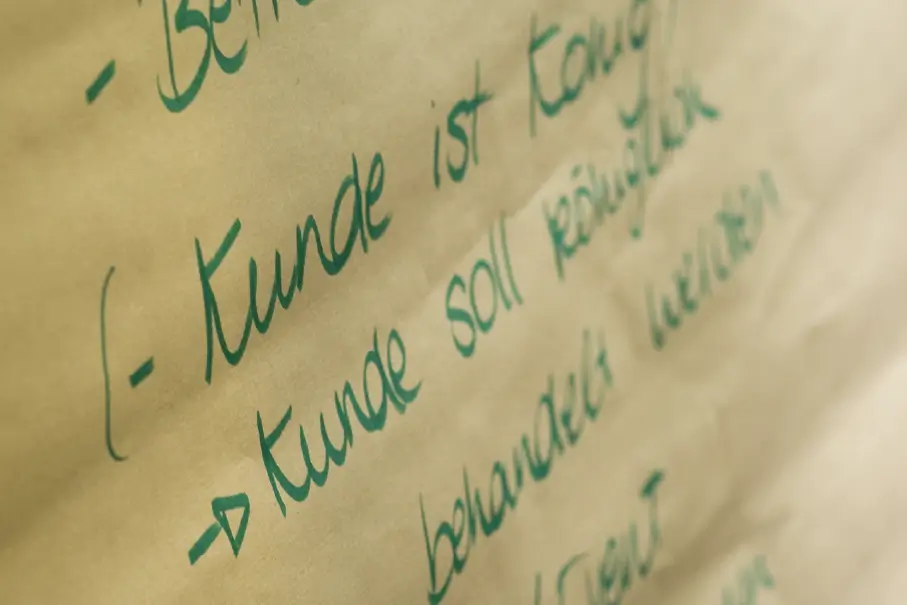 - Kunde ist König
Kunde soll königlich
behandelt werden